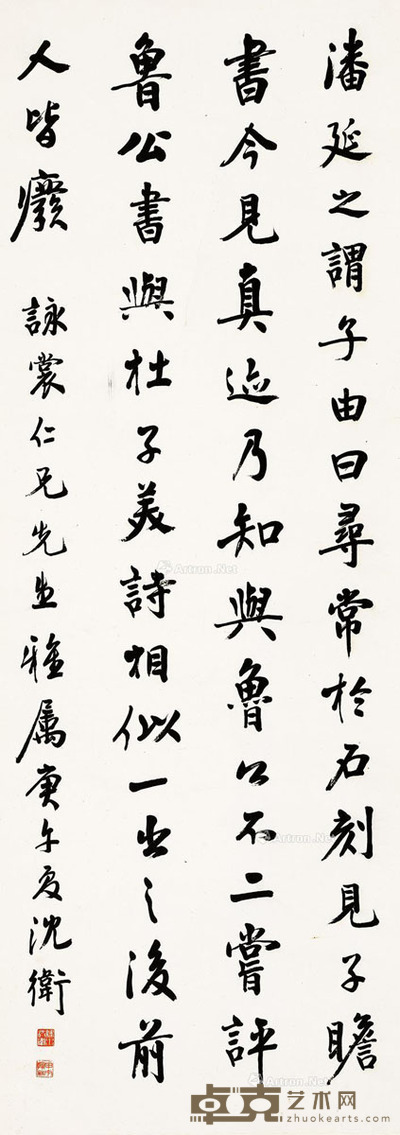 潘延之謂子由曰尋常於石刻見子瞻
書今見真迹乃知與魯公不二嘗評
魯公書與杜子美詩相似一出之後前
人皆廢 詠裳仁兄先生雅屬庚午夏沈衛
Artron.Net
Artron.Net
Artron.Net
Artron.Net
卓克艺术网
zhuokearts.com